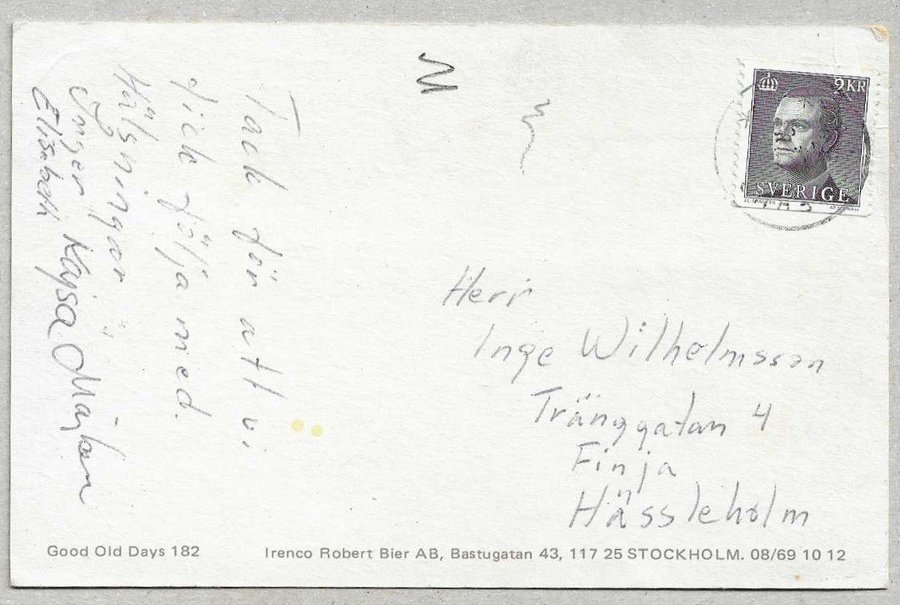 Tack för att vi
fick följa med.
Hälsningar
Inger Kajsa Mårten
Elisabeth
2KR
SVERIGE
Herr
Inge Wilhelmsson
Tränggatan 4
Finja
Hässleholm
Good Old Days 182
Irenco Robert Bier AB, Bastugatan 43, 117 25 STOCKHOLM. 08/69 10 12